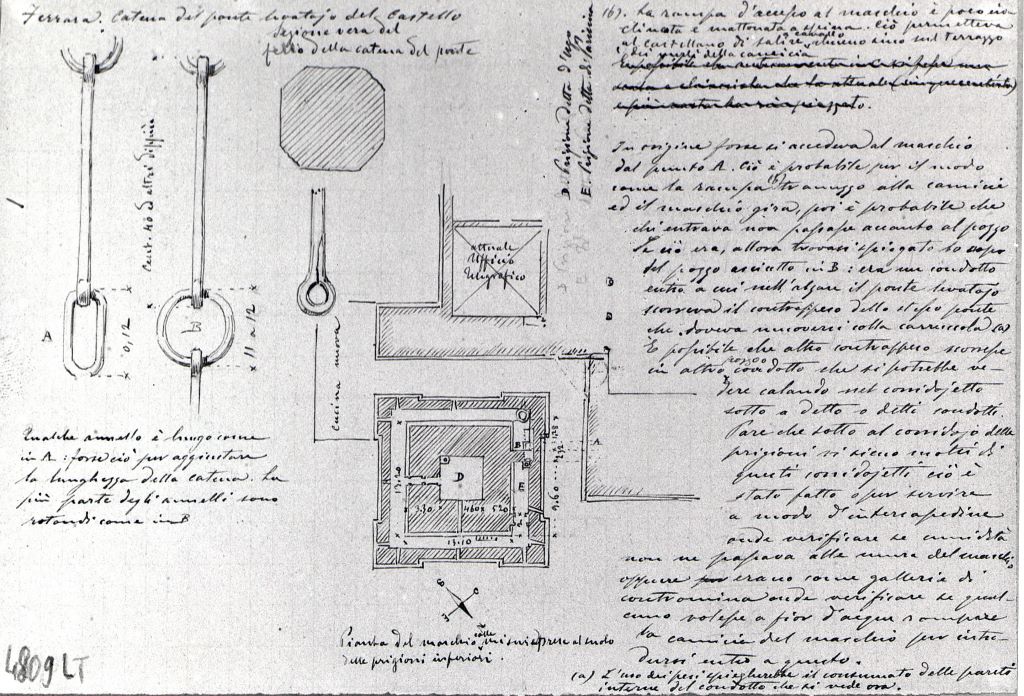 Ferrara. Catena del ponte levatojo del Castello
Sezione vera del
ferro della catena del ponte
Cent. 40 ed altri di più
A
0,12
B
11 a 12
Qualche annello è lungo come
in A: forse ciò per aggiustare
la lunghezza della catena. La
più parte degli annelli sono
rotondi come in B
cucina nuova
attuale
Ufficio
Telegrafico
D. Prigione detta d'Ugo
E. Prigione detta di Parisina
A
B
D
E
13.20
3.30
460 x 520
13.10
9.60
Pianta del maschio colle misure prese al suolo
delle prigioni inferiori.
La rampa d'accesso al maschio è poco in
clinata e mattonata a spina. Ciò permetteva
al Castellano di salire a cavallo almeno sino sul terrazzo
dei della camicia
In origine forse si accedeva al maschio
dal punto A. Ciò è probabile per il modo
come la rampa in mezzo alla camicia
ed il maschio gira, poi è probabile che
chi entrava non passasse accanto al pozzo
Se ciò era, allora trovasi spiegato lo scopo
del pozzo asciutto in B: era un condotto
entro a cui nell'alzare il ponte levatojo
scorreva il contrappeso dello stesso ponte
che doveva muoversi colla carrucola (a)
È possibile che altro contrappeso scorresse
in altro condotto che si potrebbe ve-
dere calando nel corridojetto
sotto a detto o detti condotti.
Pare che sotto al corridojo delle
prigioni vi sieno molti di
questi corridojetti ciò è
stato fatto o per servire
a modo d'intercapedine
onde verificare se umidità
non ne passava alle mura del maschio
oppure erano come gallerie di
contromina onde verificare se qual-
cuno volesse a fior d'acqua rompere
la camicia del maschio per intro-
dursi entro a questo.
(a) L'uso dei pesi spiegherebbe il consumato delle pareti
interne del condotto che si vede ora.
4809 LT